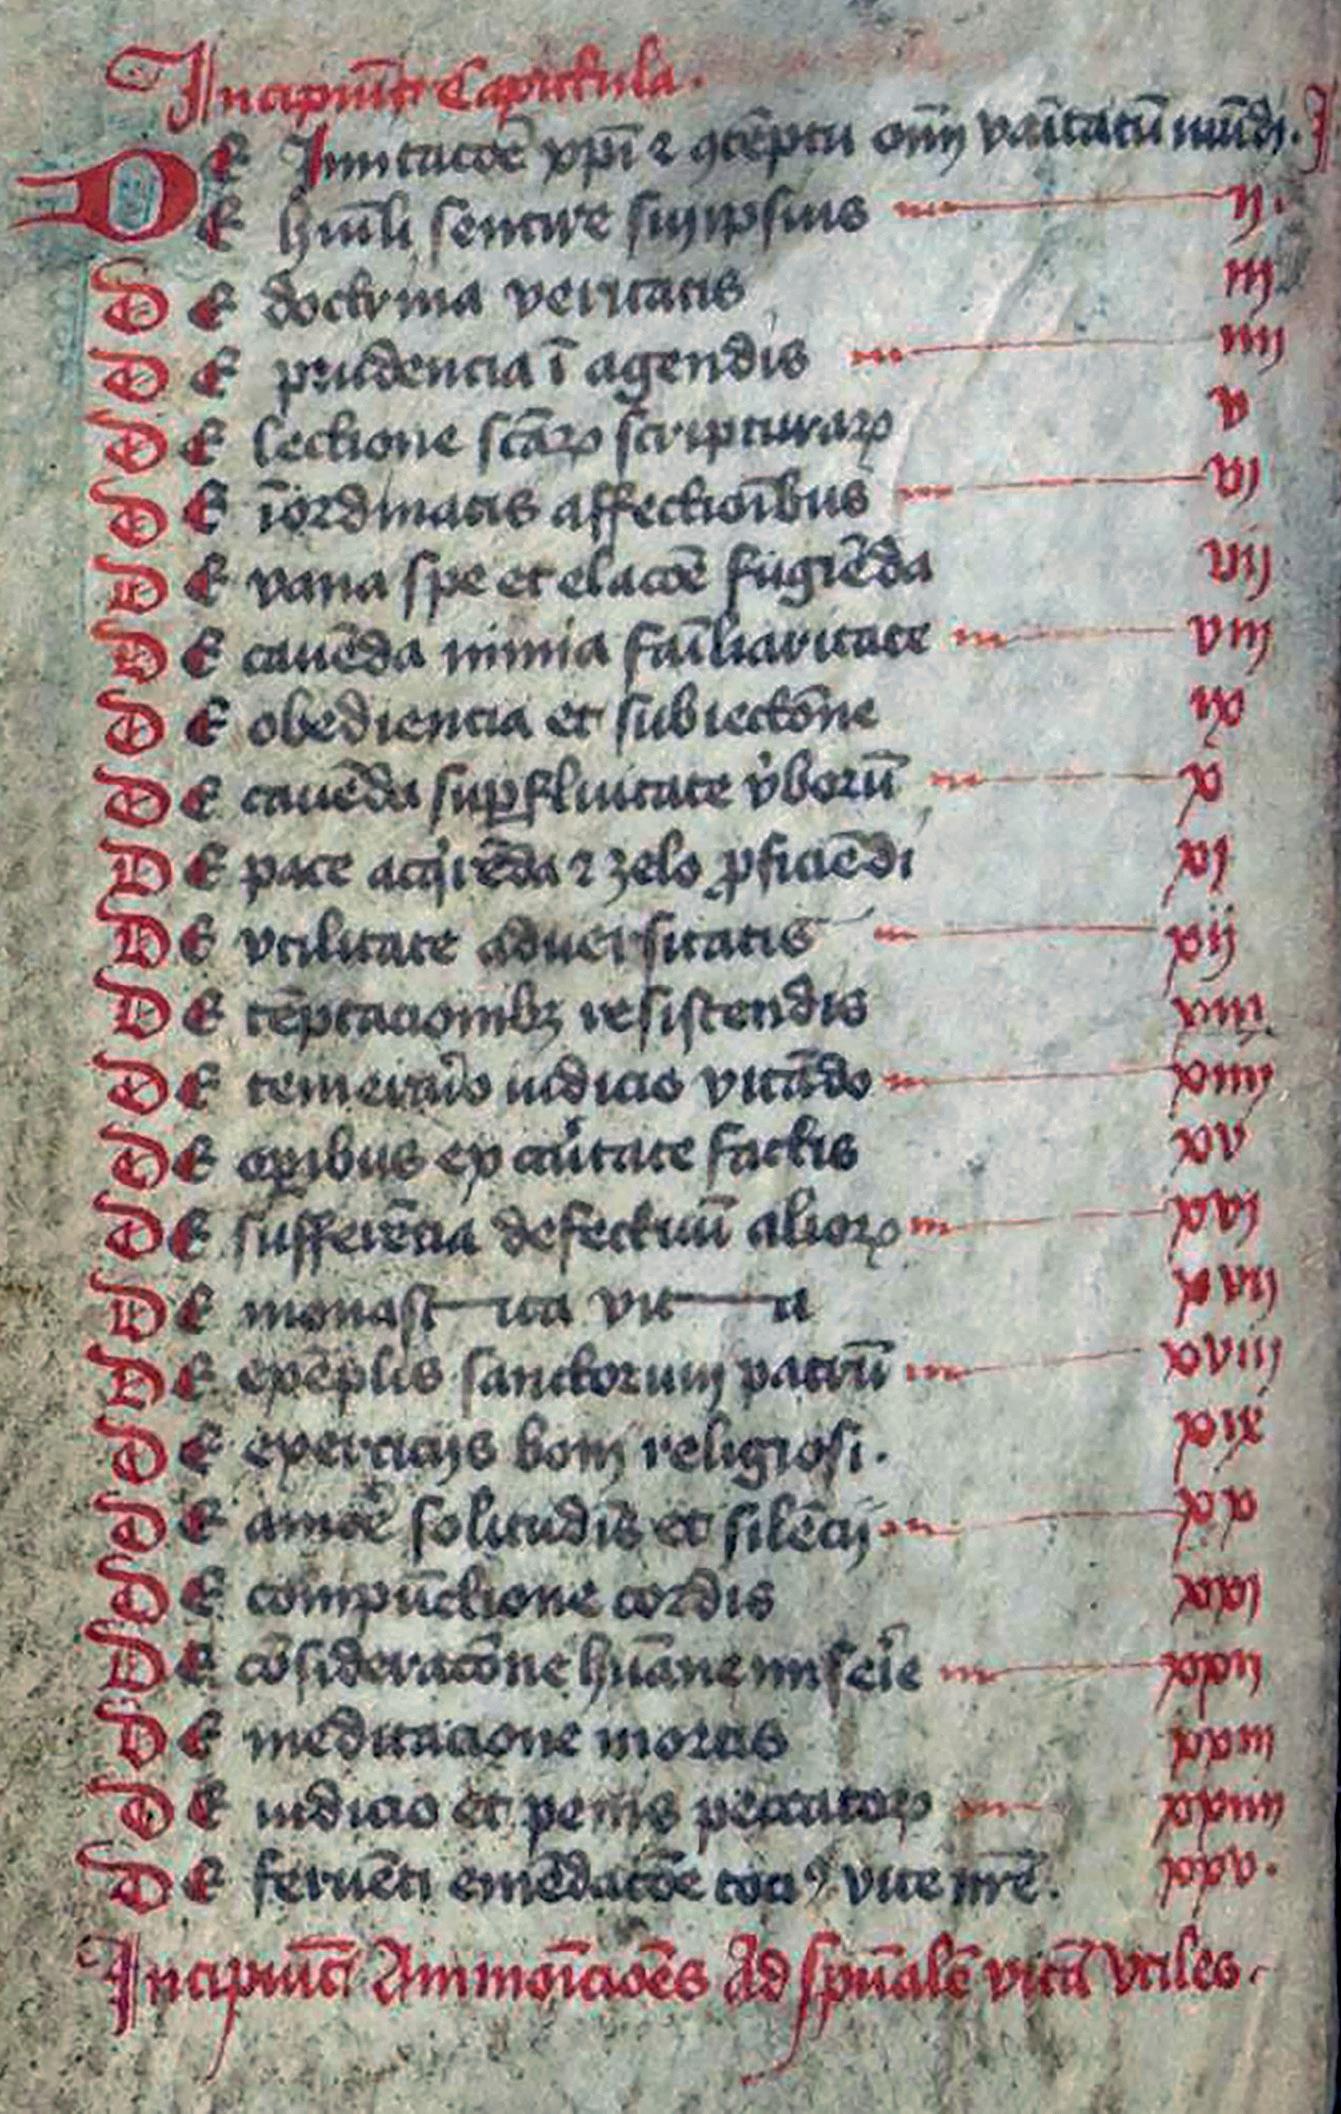 Incipiūt Capitula.
DE Imitacōe xpi ⁊ ꝯtēptu oīm vanitatū mūdi. I
E hūili sentire sui ipsius ij.
DE doctrina veritatis iij
DE prudencia ī agendis iiij
DE lectione scāꝝ scripturaꝝ v
DE īordinatis affectioībus vi
DE vana spe et elacōe fugiēda vij
DE cauēda nimia fāiliaritate viij
DE obediencia et subiectōne ix
DE cauēda suꝑfluitate v̓borū x
DE pace acq̓rēda ⁊ zelo ꝓficiēdi xi
DE vtilitate aduersitatis xij
DE tēptacionibꝫ resistendis xiij
DE temerar̓o iudicio vitādo xiiij
DE oꝑibus ex car̓tate factis xv
DE sufferēcia defectuū alioꝝ xvi
DE monastica vita xvij
DE exēplis sanctorum patrū xviij
DE exercicijs boni religiosi. xix
DE amōe solitudīs et silēcij xx
DE compūctione cordis xxi
DE cōsideracōne hūane miser̓ie xxij
DE meditacione mortis xxiij
DE iudicio et penis peccatoꝝ xxiiij
DE feruēti emēdacōe toci⁹ vite nr̄e. xxv.
Incipiūt Ammoīcioēs Ad spūalē vitā vtiles.